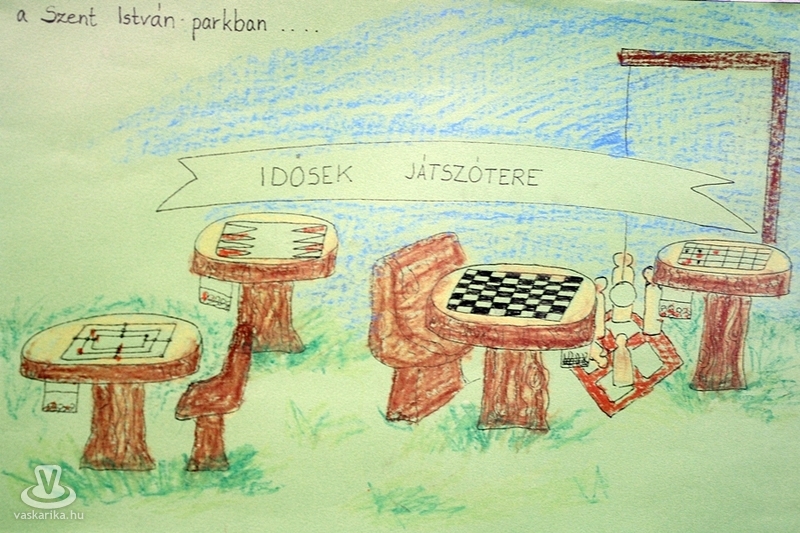 a Szent István parkban ....
IDŐSEK JÁTSZÓTERE
vaskarika.hu